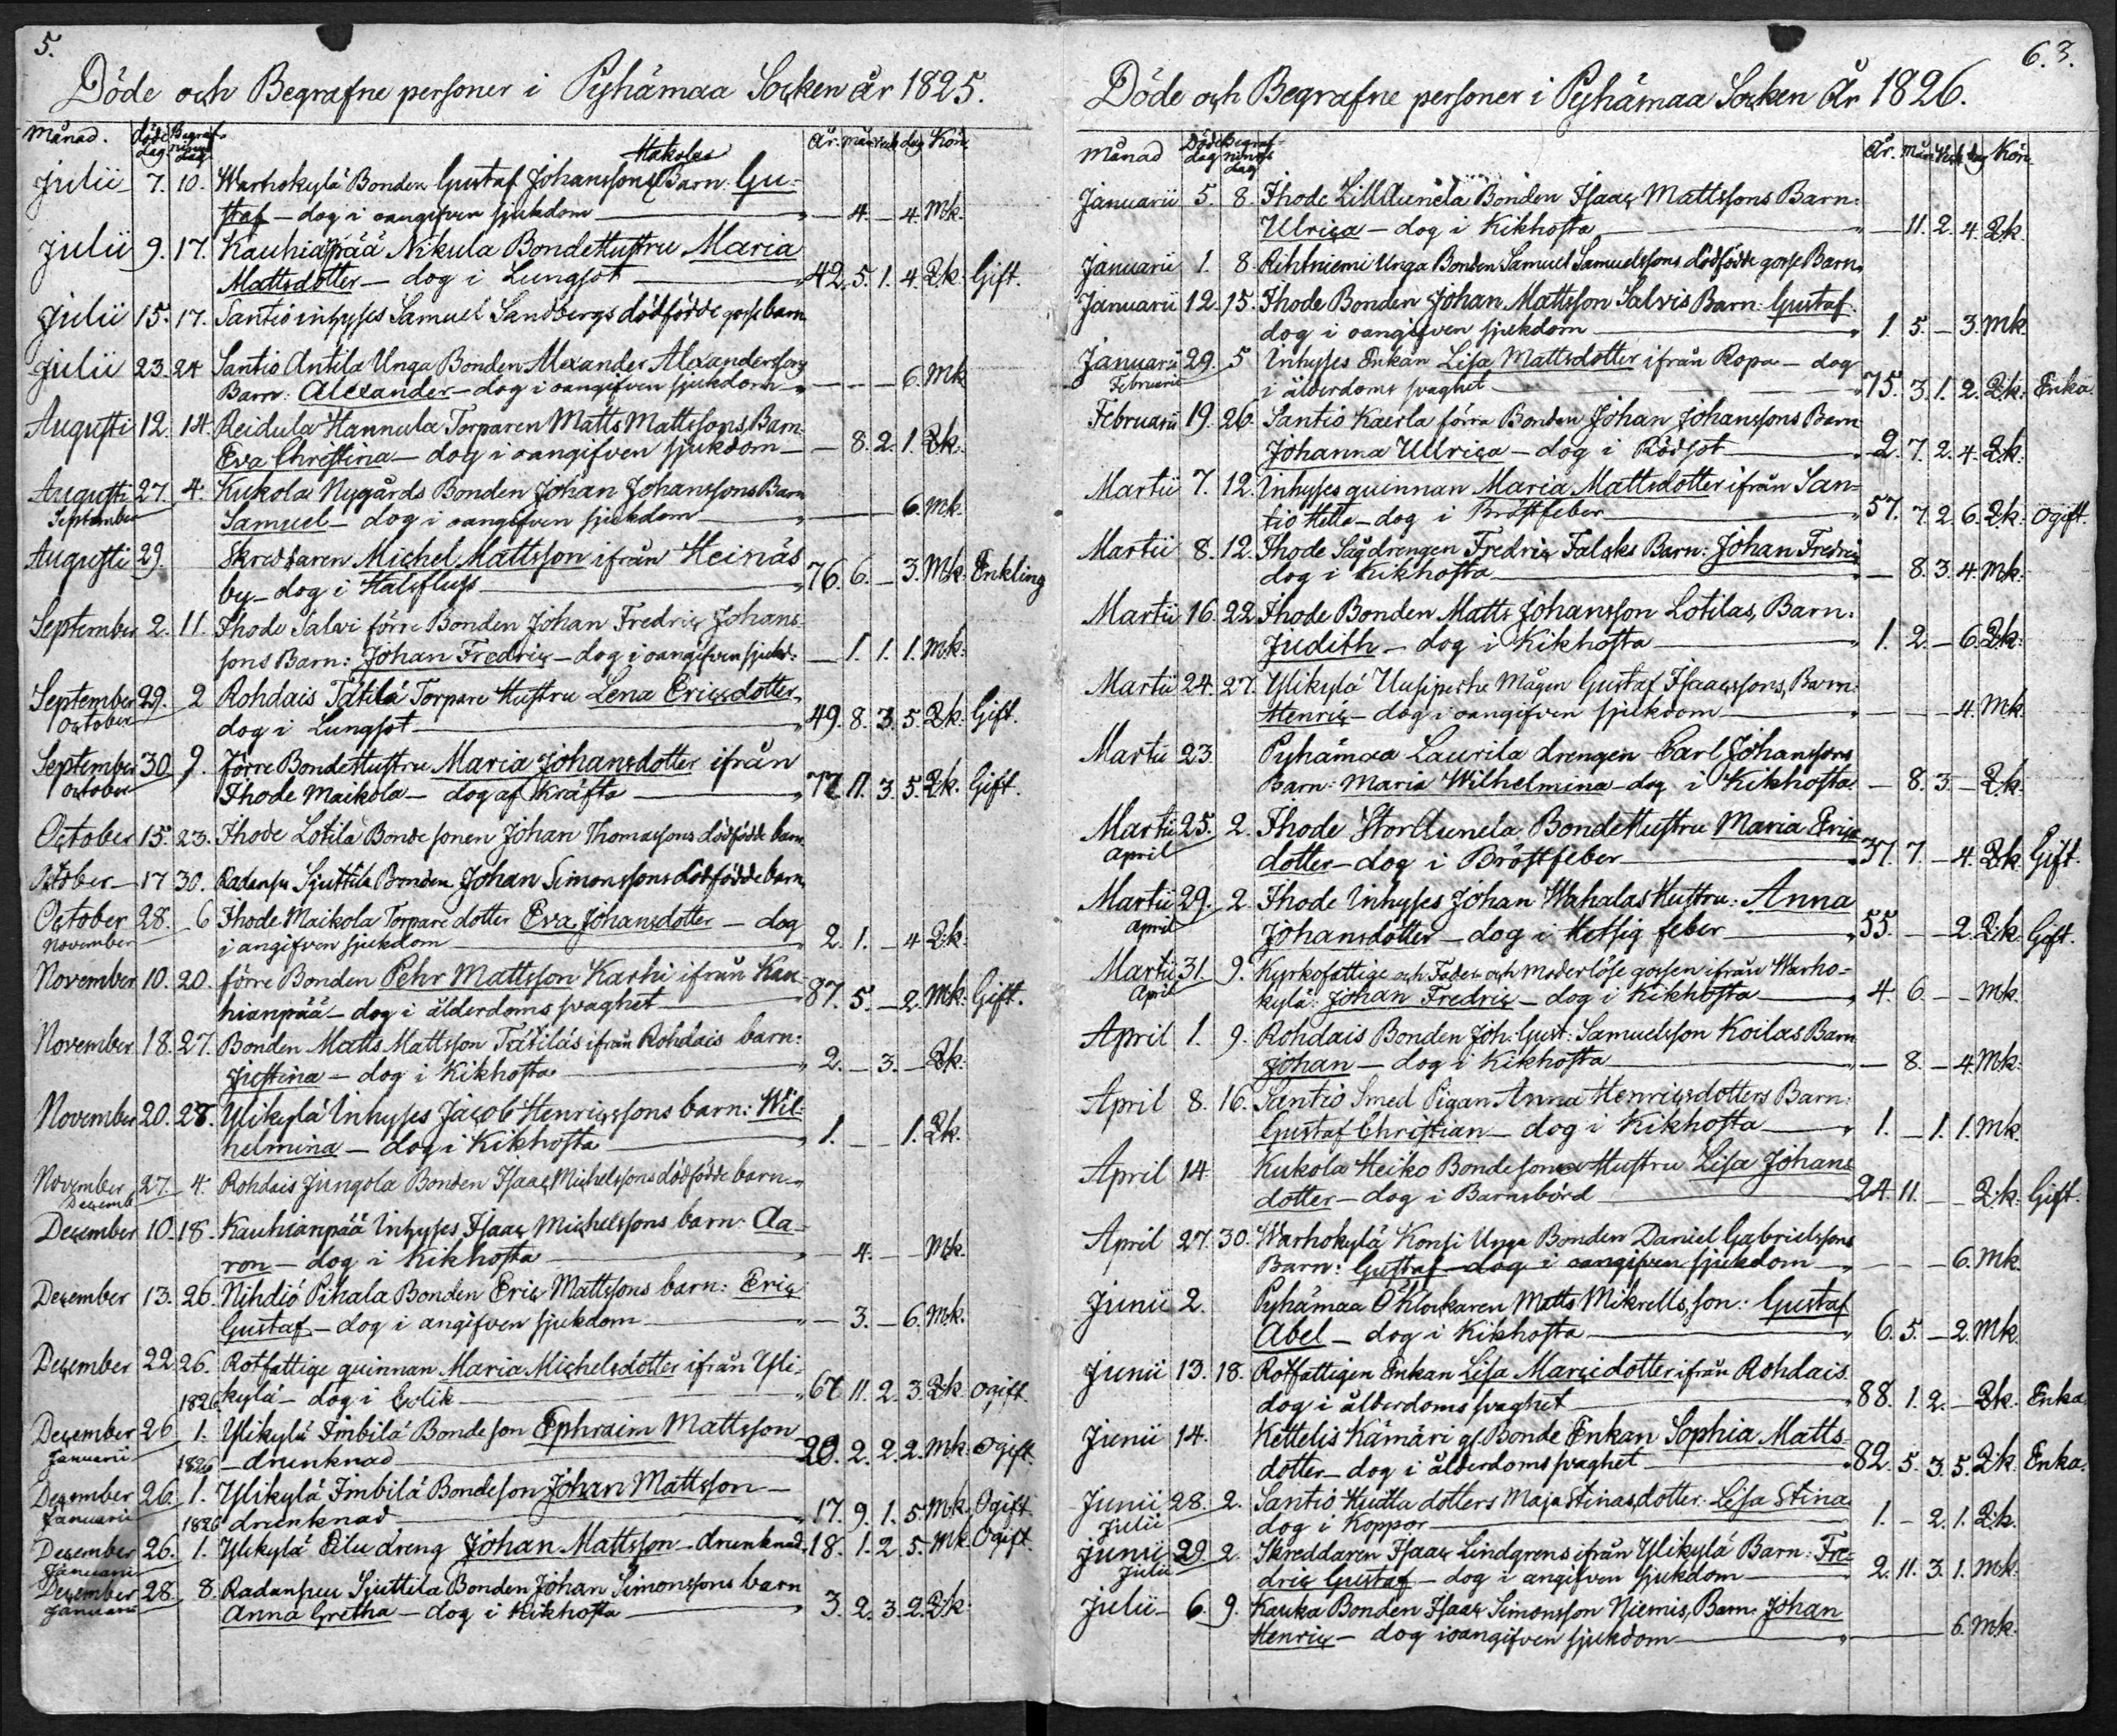 5.
Döde och Begrafne personer i Pyhämaa Socken år 1825.
Månad. döde dag Begrafnings dag År. Mån Veck dag Kön
Makolas
Julii 7. 10. Warhokylä Bonden Gustaf Johanssons Barn: Gu-
staf — dog i oangifven sjukdom — 4. — 4. Mk.
Julii 9. 17. Kauhianpää Nikula Bondehustru Maria
Mattsdotter — dog i Lungsot 42. 5. 1. 4. Qk. Gift.
Julii 15. 17. Santio inhyses Samuel Sandbergs dödfödde gosse barn
Julii 23. 24 Santio Antila Unga Bonden Alexander Alexanderssons
Barn: Alexander — dog i oangifven sjukdom — — — 6. Mk
Augusti 12. 14. Reidula Hannula Torparen Matts Mattssons Barn
Eva Christina — dog i oangifven sjukdom — — 8. 2. 1. Qk.
Augusti 27. 4. Kukola Nygårds Bonden Johan Johanssons Barn
September Samuel — dog i oangifven sjukdom — 6. Mk.
Augusti 29. Skreddaren Michel Mattsson ifrån Heinäs
by — dog i Halsfluss 76. 6. — 3. Mk. Enkling
September 2. 11. Ihode Salvi förre Bonden Johan Fredric Johans-
sons Barn: Johan Fredric — dog i oangifven sjukd: — 1. 1. 1. Mk.
September 29. 2 Rohdais Tätilä Torpare Hustru Lena Ericsdotter
October dog i Lungsot 49. 8. 3. 5. Qk. Gift.
September 30 9. Förre Bondehustru Maria Johansdotter ifrån
October Ihode Maikola — dog af Kräfta 77. 11. 3. 5. Qk. Gift.
October 15. 23. Ihode Lotila Bonde sonen Johan Thomassons dödfödde barn
October — 17 30. Radansu Sjuttila Bonden Johan Simonssons dödfödde barn
October 28. 6 Ihode Maikola Torpare dotter Eva Johansdotter — dog
November i angifven sjukdom 2. 1. — 4 Qk.
November 10. 20. förre Bonden Pehr Mattsson Karhi ifrån Kau-
hianpää — dog i ålderdoms svaghet 87. 5. — 2. Mk. Gift.
November 18. 27. Bonden Matts Mattsson Tätiläs ifrån Rohdais barn:
Justina — dog i Kikhosta 2. — 3. — Qk.
November 20. 28. Ylikylä Inhyses Jacob Henricssons barn: Wil-
helmina — dog i Kikhosta 1. — — 1. Qk.
November 27. 4. Rohdais Jungola Bonden Isaac Michelssons dödfödde barn
Decemb
December 10. 18. Kauhianpää Inhyses Isaac Michelssons barn: Aa-
ron — dog i Kikhosta — 4. — — Mk.
December 13. 26. Nihdiö Pihala Bonden Eric Mattssons barn: Eric
Gustaf — dog i angifven sjukdom — 3. — 6. Mk.
December 22 26. Rotfattige quinnan Maria Michelsdotter ifrån Yli-
1826 kylä — dog i Colik 67 11. 2. 3. Qk ogift.
December 26 1. YlikyläImbilä Bondeson Ephraim Mattsson
Januarii 1826 — drunknad 20. 2. 2. 2. Mk. Ogift.
December 26. 1. Ylikylä Imbilä Bondeson Johan Mattsson —
Januarii 1826 drunknad 17. 9. 1. 5. Mk. Ogift.
December 26. 1. Ylikylä Eilu dreng Johan Mattsson — drunknad 18. 1. 2. 5. Mk Ogift.
Januarii
December 28. 8. Radansuu Sjuttila Bonden Johan Simonssons barn
Januarii Anna Gretha — dog i Kikhosta 3. 2. 3. 2. Qk.
6. 3.
Döde och Begrafne personer i Pyhämaa Socken År 1826.
Månad Döde dag Begrafnings dag År. Mån Veck dag Kön
Januarii 5. 8. Ihode LillAunela Bonden Isaac Mattssons Barn:
Ulrica — dog i Kikhosta — 11. 2. 4. Qk.
Januarii 1. 8 Rihtniemi Unga Bonden Samuel Samuelssons dödfödde gosse Barn
Januarii 12. 15. Ihode Bonden Johan Mattsson Salvis Barn: Gustaf
dog i oangifven sjukdom 1. 5. — 3. Mk
Januarii 29. 5 Inhyses Enkan Lisa Mattsdotter ifrån Ropa — dog
Februarii i ålderdoms svaghet 75. 3. 1. 2. Qk. Enka.
Februarii 19. 26. Santio Kaerla förre Bonden Johan Johanssons Barn
Johanna Ullrica — dog i Rödsot 2. 7. 2. 4. Qk.
Martii 7. 12. Inhyses quinnan Maria Mattsdotter ifrån San-
tio Hella — dog i Bröstfeber 57. 7. 2. 6. Qk. Ogift.
Martii 8. 12. Ihode Sågdrengen Fredric Falcks Barn: Johan Fredric
dog i Kikhosta — 8. 3. 4. Mk.
Martii 16. 22. Ihode Bonden Matts Johansson Lotilas, Barn:
Judith — dog i Kikhosta 1. 2. — 6. Qk.
Martii 24. 27. Ylikylä Uusipertu Mågen Gustaf Isaacssons, Barn:
Henric — dog i oangifven sjukdom — — — 4. Mk.
Martii 23 Pyhämaa Laurila drengen Carl Johanssons
Barn: Maria Wilhelmina — dog i Kikhosta — 8. 3. — Qk.
Martii 25. 2. Ihode StorAunela Bondehustru Maria Erics
April dotter — dog i Bröstfeber 37. 7. — 4. Qk. Gift.
Martii 29. 2. Ihode Inhyses Johan Wahalas Hustru: Anna
April Johansdotter — dog i Hetsig feber 55. — — 2. Qk. Gift.
Martii 31. 9. Kyrkofattige och Fader och moderlöse gossen ifrån Warho-
April kylä: Johan Fredric — dog i Kikhosta 4. 6. — — Mk.
April 1. 9. Rohdais Bonden Joh. Gust: Samuelsson Koilas Barn
Johan — dog i Kikhosta — 8. — 4. Mk.
April 8. 16. Santio Smed Pigan Anna Henricsdotters Barn:
Gustaf Christian — dog i Kikhosta 1. — 1. 1. Mk.
April 14. Kukola Heiko Bondesonen Hustru Lisa Johans
dotter — dog i Barnsbörd 24. 11. — — Qk. Gift.
April 27. 30. Warhokylä Konsi Unga Bonden Daniel Gabrielssons
Barn: Gustaf — dog i oangifven sjukdom — — — 6. Mk
Junii 2. Pyhämaa Klockaren Matts Mikrells, son: Gustaf
Abel — dog i Kikhosta 6. 5. — 2. Mk.
Junii 13. 18. Rotfattigen Enkan Lisa Marcidotter ifrån Rohdais.
dog i ålderdoms svaghet 88. 1. 2. — Qk. Enka.
Junii 14. Kettelis Kämäri gl. Bonde Enkan Sophia Matts
dotter — dog i ålderdoms svaghet 82. 5. 3. 5. Qk Enka.
Junii 28. 2. Santio dotters Maja Stinas, dotter: Lisa Stina
Julii dog i Koppor 1. — 2. 1. Qk.
Junii 29 2. Skreddaren Isaac Lindgrens ifrån Ylikylä Barn: Fre-
Julii dric Gustaf — dog i angifven sjukdom — 2. 11. 3. 1. Mk.
Julii — 6. 9. Kaukka Bonden Isaac Simonsson Niemis, Barn: Johan
Henric — dog i oangifven sjukdom — 6. Mk.